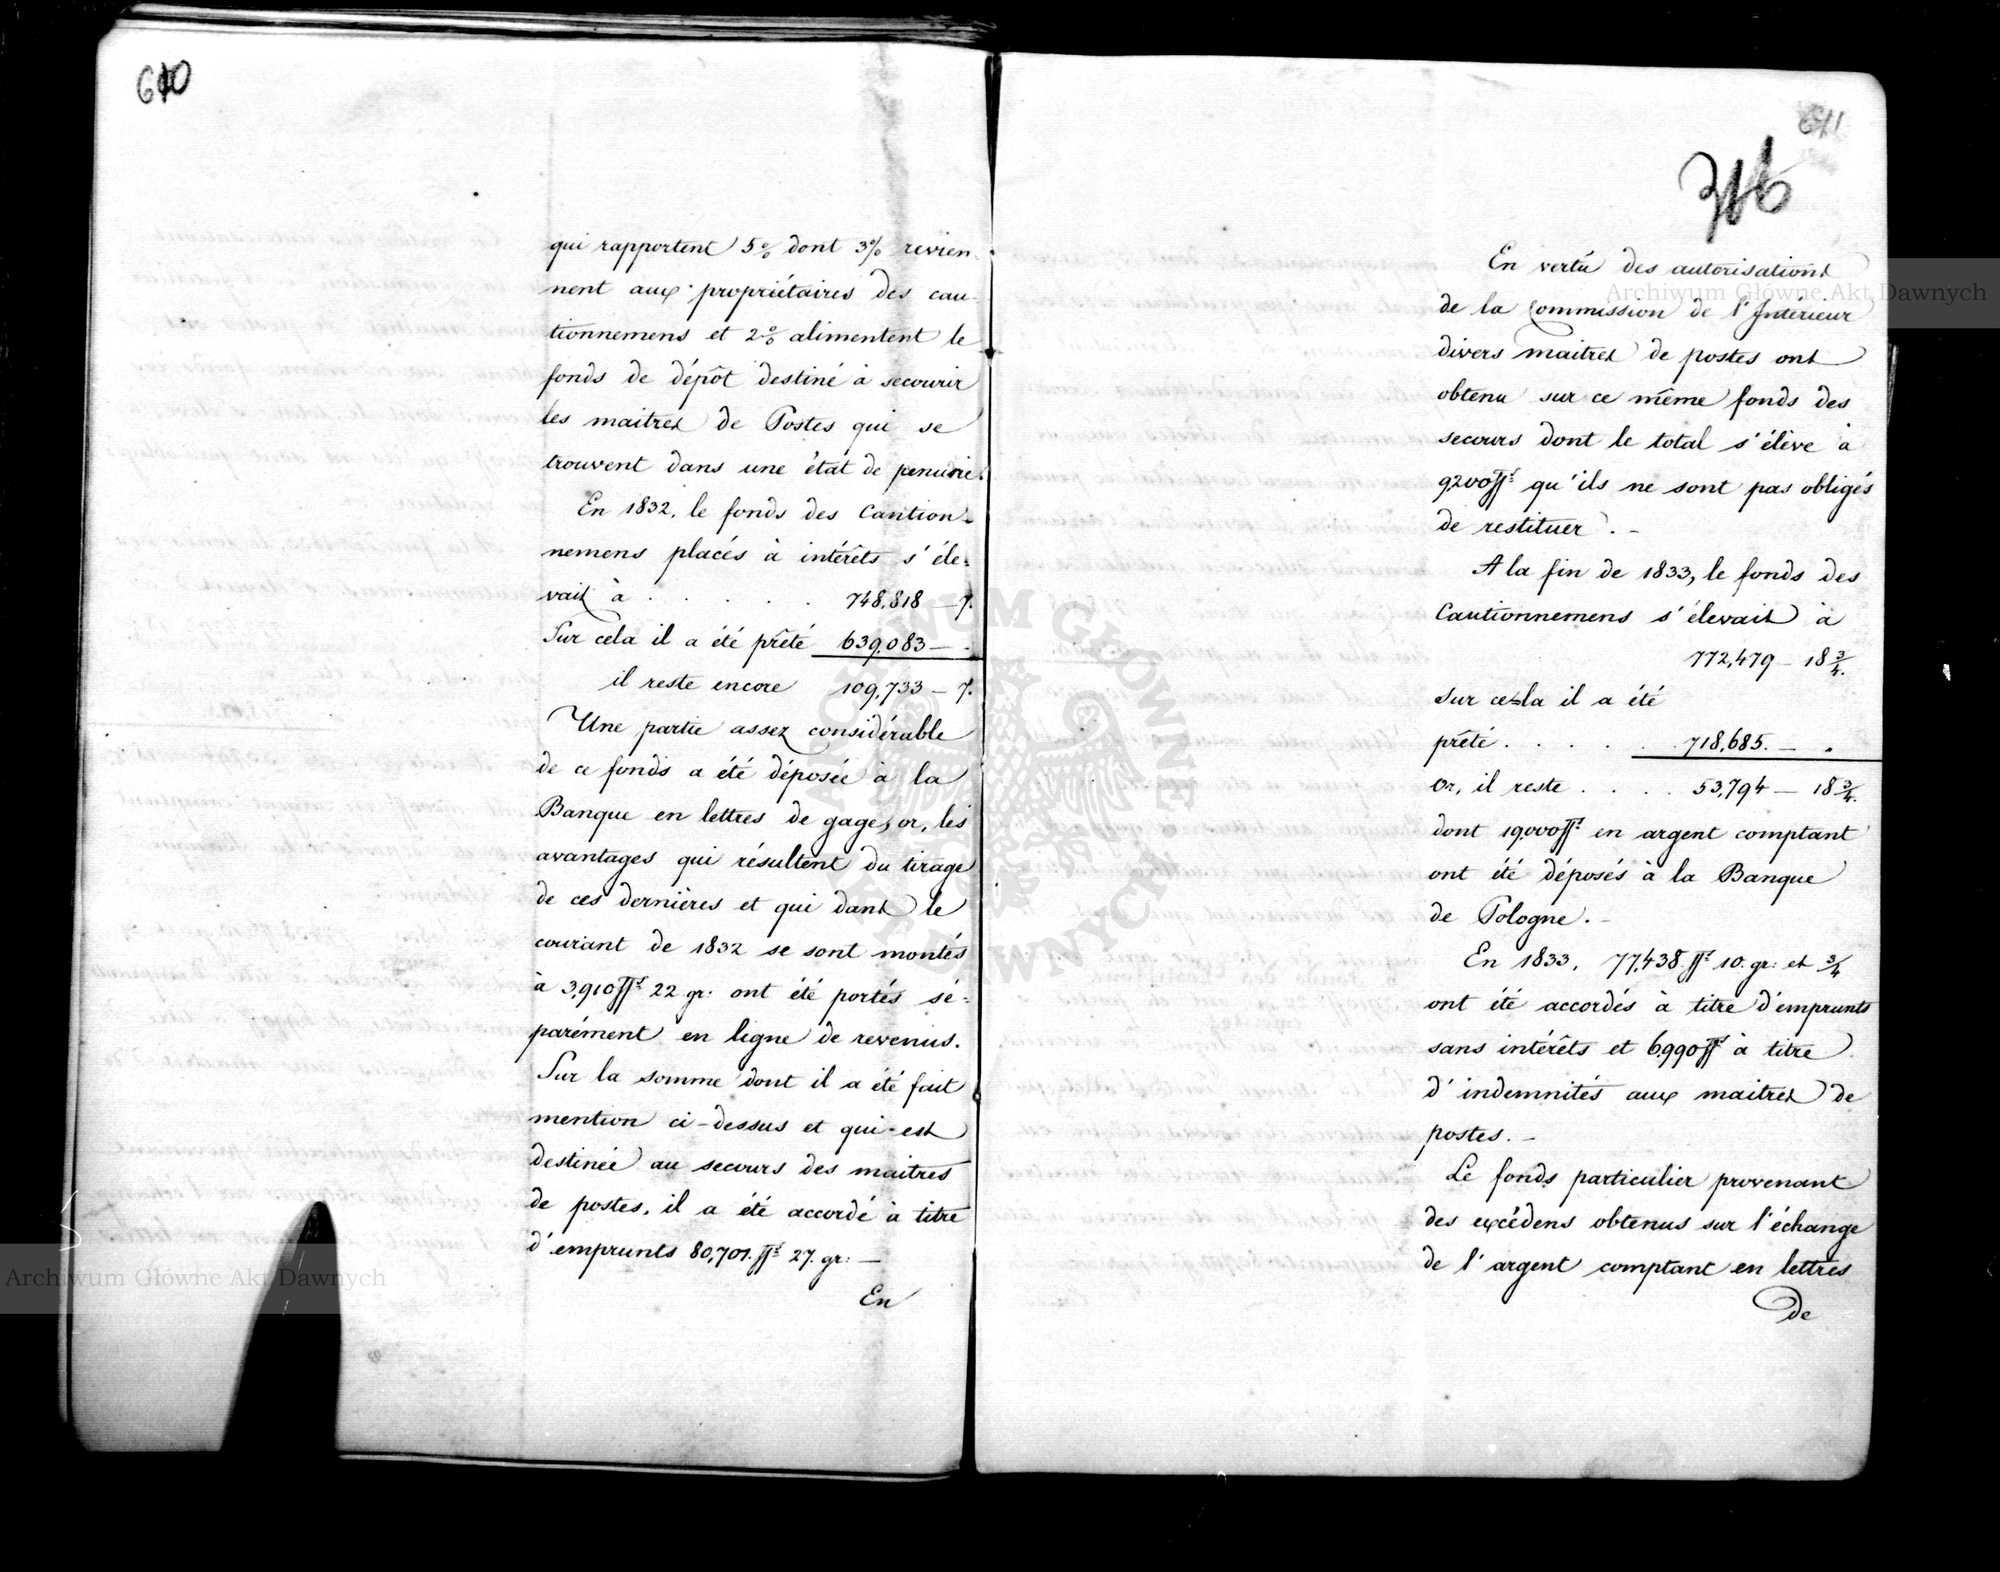 610
qui rapportent 5% dont 3% revien-
nent aux propriétaires des cau-
tionnemens et 2% alimentent le
fonds de dépôt destiné à secourir
les maitres de Postes qui se
trouvent dans une état de penurie.
En 1832, le fonds des Caution-
nemens placés à intérêts s'éle-
vait à . . . . . 748,818 — 7.
Sur cela il a été prêté 639,083 — .
il reste encore 109,733 — 7.
Une partie assez considérable
de ce fonds a été déposée à la
Banque en lettres de gage, or, les
avantages qui résultent du tirage
de ces dernières et qui dans le
courant de 1832 se sont montés
à 3,910 ff. 22 gr: ont été portés sé-
parément en ligne de revenus.
Sur la somme dont il a été fait
mention ci-dessus et qui est
destinée au secours des maitres
de postes, il a été accordé à titre
d'emprunts 80,701. ff. 27. gr: —
En
611
316
En vertu des autorisations
de la Commission de l'Intérieur
divers maitres de postes ont
obtenu sur ce même fonds des
secours dont le total s'élève à
9200 ff. qu'ils ne sont pas obligés
de restituer. -
A la fin de 1833, le fonds des
Cautionnemens s'élevait à
772,479 — 18 3/4.
Sur cela il a été
prêté . . . . . 718,685. — .
Or, il reste . . . . 53,794 — 18 3/4.
dont 19,000 ff. en argent comptant
ont été déposés à la Banque
de Pologne. -
En 1833, 77,438. ff. 10. gr: et 3/4
ont été accordés à titre d'emprunts
sans intérêts et 6,990 ff. à titre
d'indemnités aux maitres de
postes. -
Le fonds particulier provenant
des excédens obtenus sur l'échange
de l'argent comptant en lettres
de
Archiwum Główne Akt Dawnych
Archiwum Główne Akt Dawnych
ARCHIWUM GŁÓWNE AKT DAWNYCH